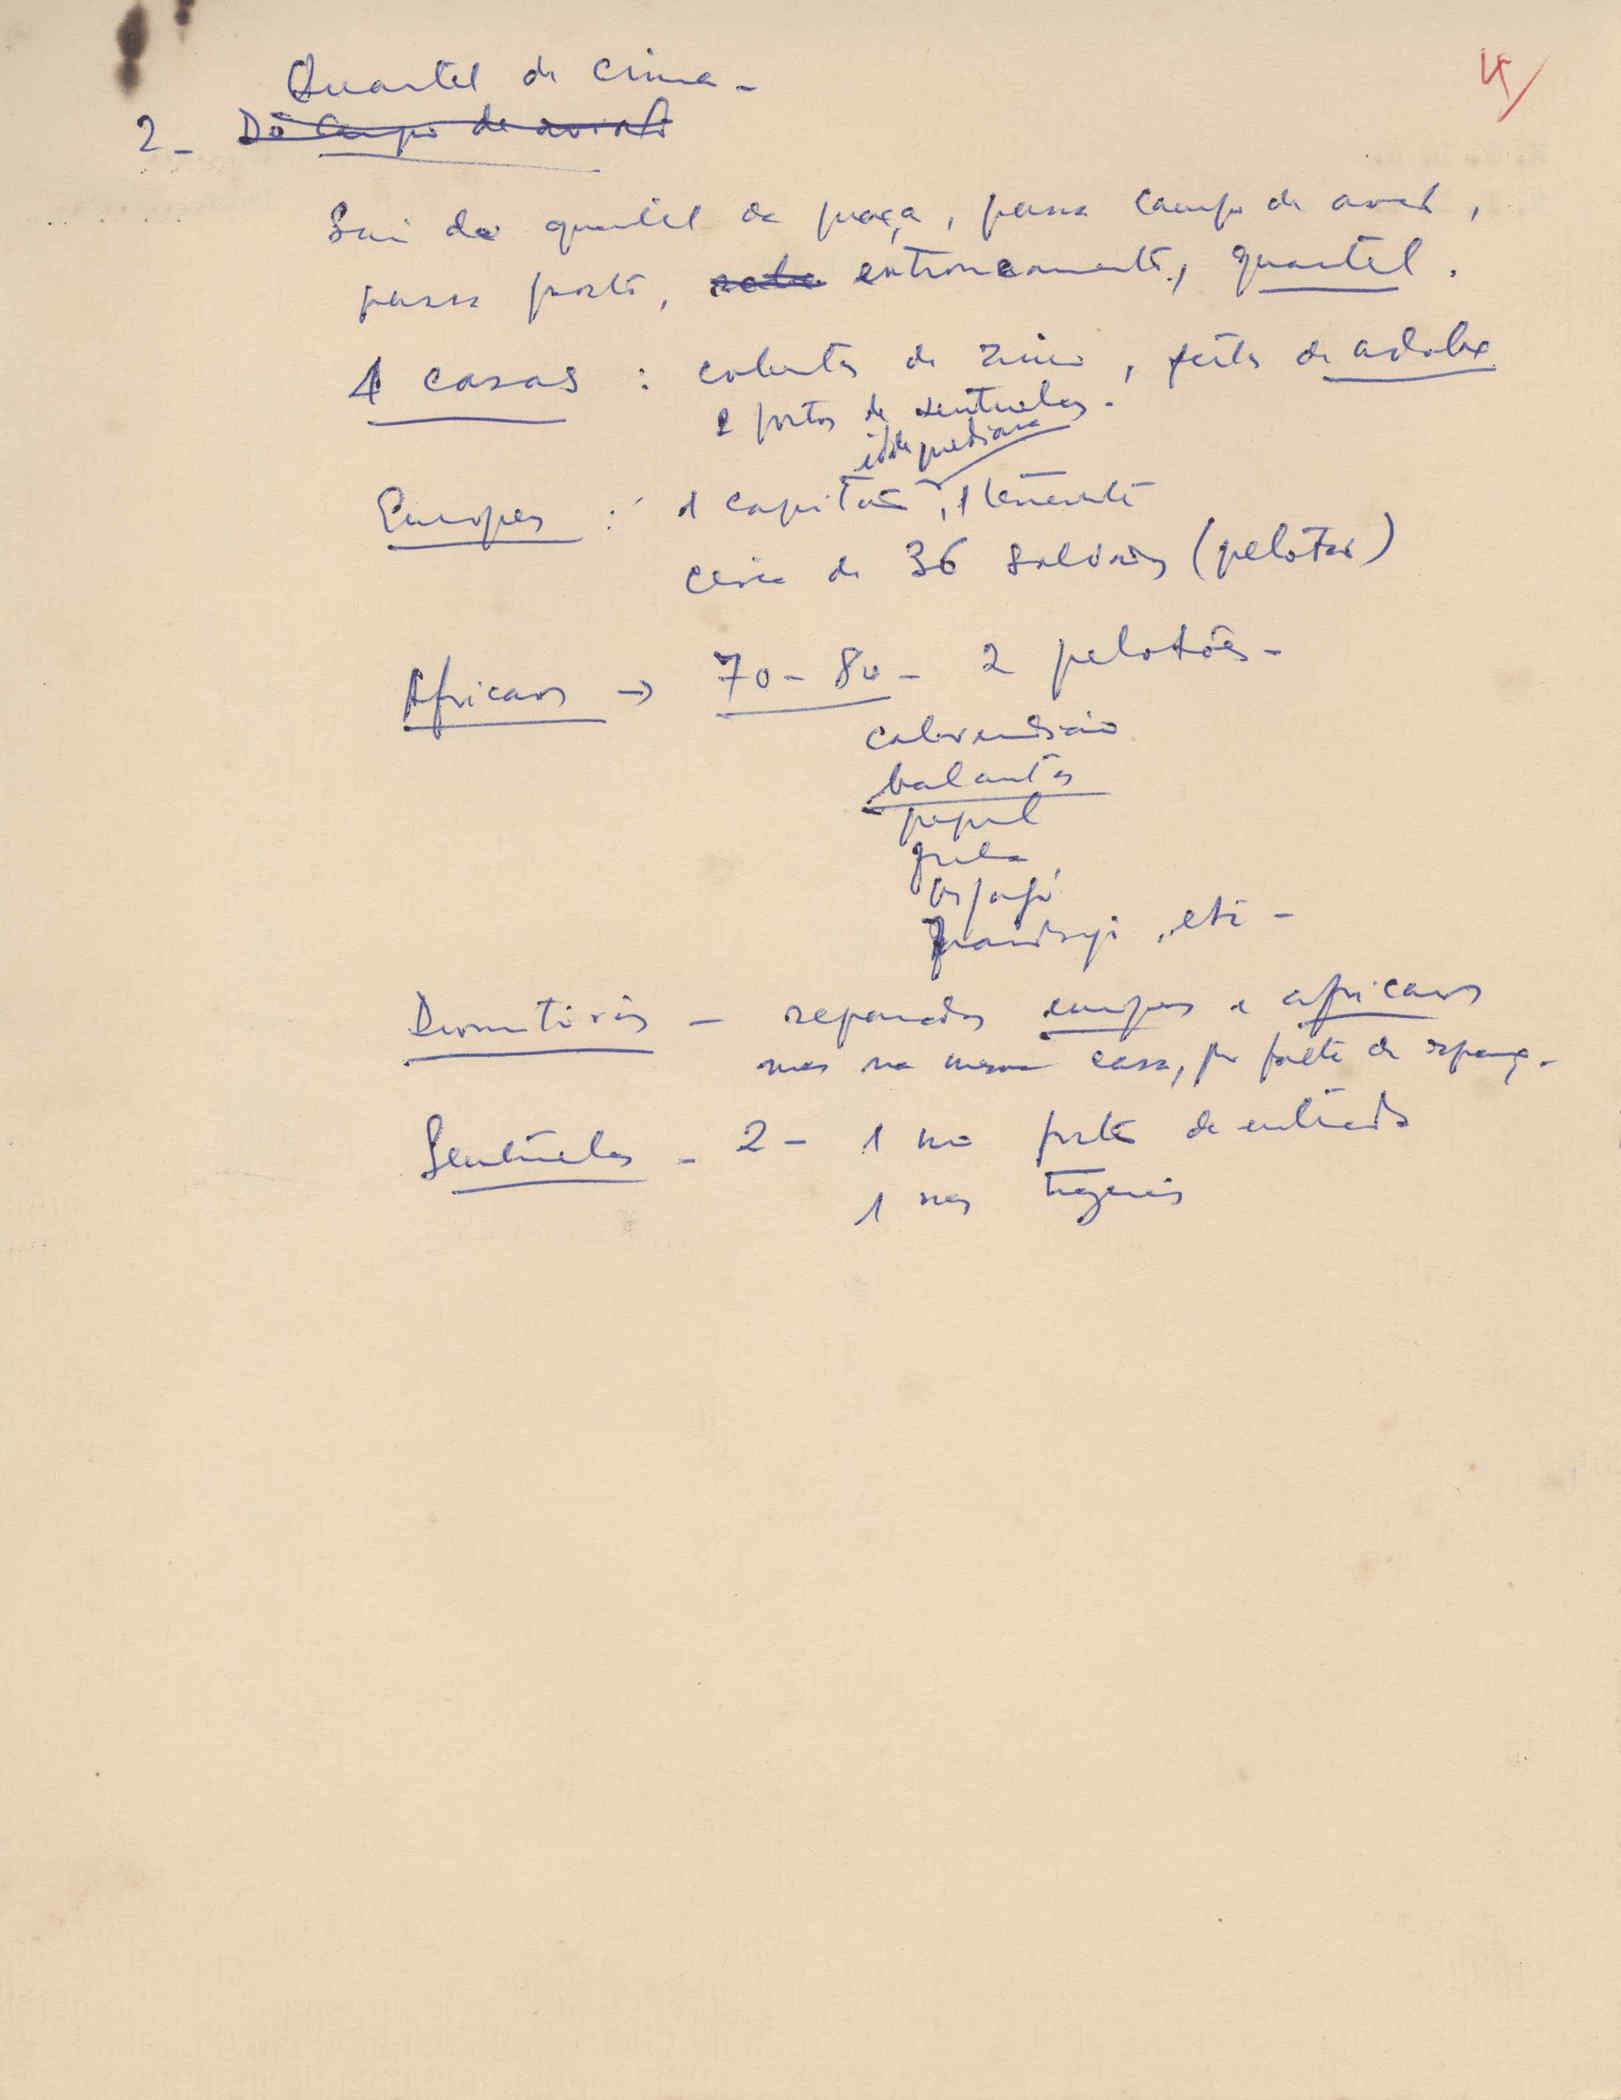 4/
Quartel de Cima -
2 - Do Campo de aviaç
Sai do quartel da praça, passa campo de aviaç,
passa ponte, entroncamento, quartel.
4 casas : cobertas de zinco, feitas de adobe
2 postos de sentinelas.
idde mediana
Europeus : 1 capitão, 1 tenente
cerca de 36 soldados (pelotão)
Africanos → 70 - 80 - 2 pelotões -
caboverdiano
balantas
papel
fula
bijagó
mandinga, etc -
Dormitórios - separados europeus e africanos
mas na mesma casa, por falta de espaço -
Sentinelas - 2 - 1 na porta de entrada
1 nas traseiras